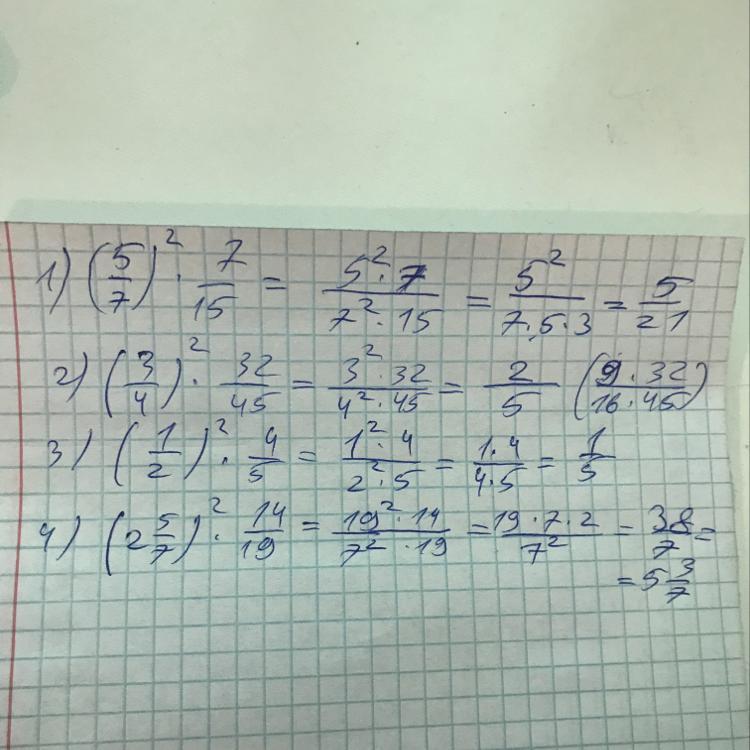 1) (5/7)² · 7/15 = 5² · 7/7² · 15 = 5²/7 · 5 · 3 = 5/21
2) (3/4)² · 32/45 = 3² · 32/4² · 45 = 2/5 (9 · 32/16 · 45)
3) (1/2)² · 4/5 = 1² · 4/2² · 5 = 1 · 4/4 · 5 = 1/5
4) (2 5/7)² · 14/19 = 19² · 14/7² · 19 = 19 · 7 · 2/7² = 38/7 =
= 5 3/7